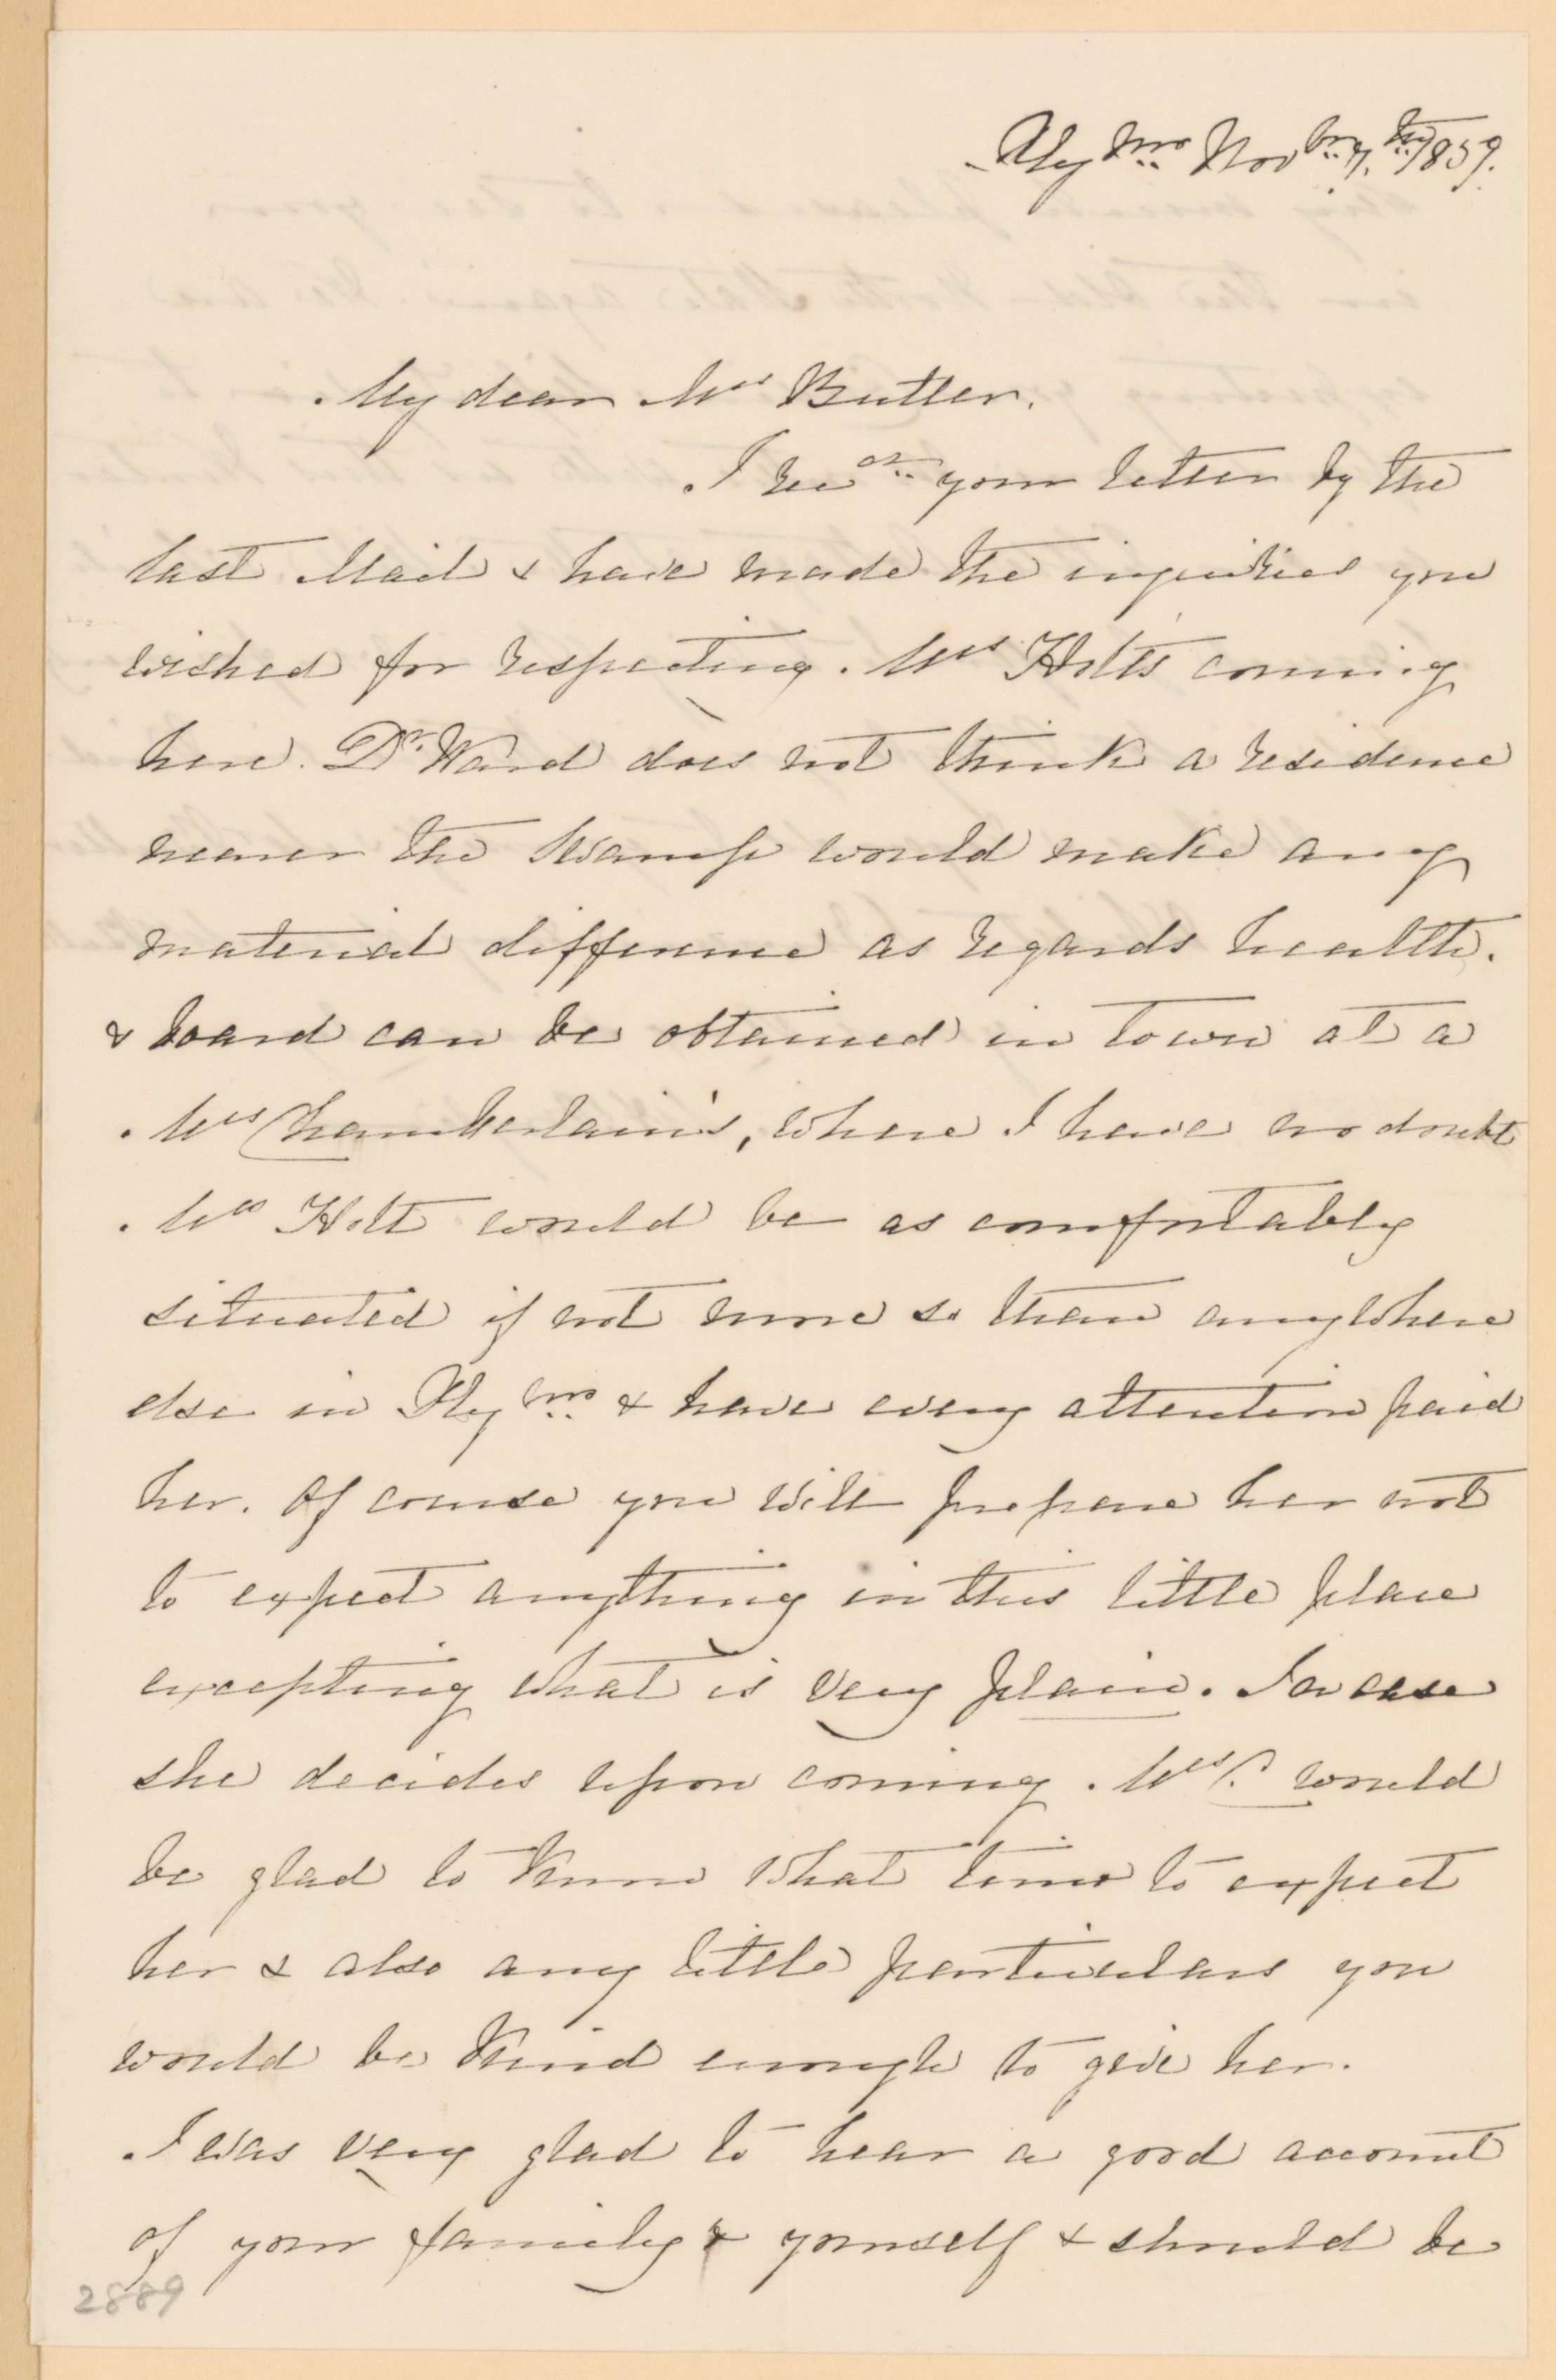 Plymo. Novbr. 7.th 1859.
My dear Mrs Butler.
I recd. your letter by the
last Mail & have made the inquiries you
wished for respecting Mrs Holt's coming
here. Dr. Ward does not think a residence
nearer the Swamp would make any
material difference as regards health.
& board can be obtained in town at a
Mrs Chamberlain's, where I have no doubt
Mrs Holt would be as comfortably
situated if not more so than anywhere
else in Plymo. & have every attention paid
her. Of course you will prepare her not
to expect anything in this little place
excepting what is very plain. In case
she decides upon coming Mrs C. would
be glad to know what time to expect
her & also any little particulars you
would be kind enough to give her.
I was very glad to hear a good account
of your family & yourself & should be
2889